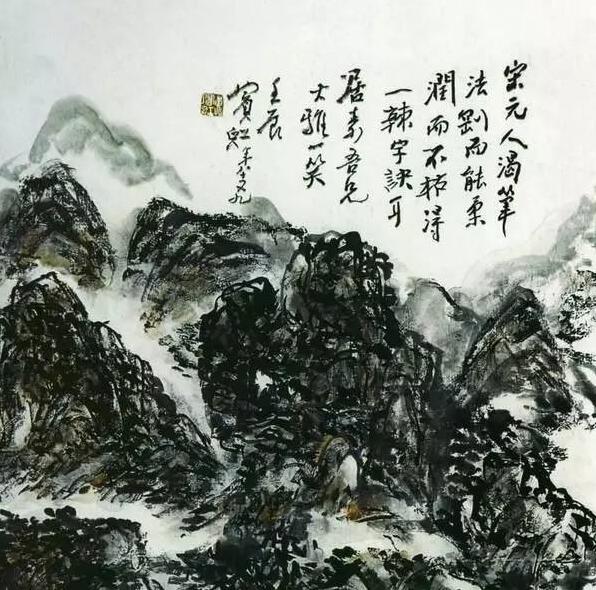 宋元人渴筆
法剛而能柔
潤而不枯得
一辣字訣耳
居素吾兄
大雅一笑
壬辰
賓虹年八十九